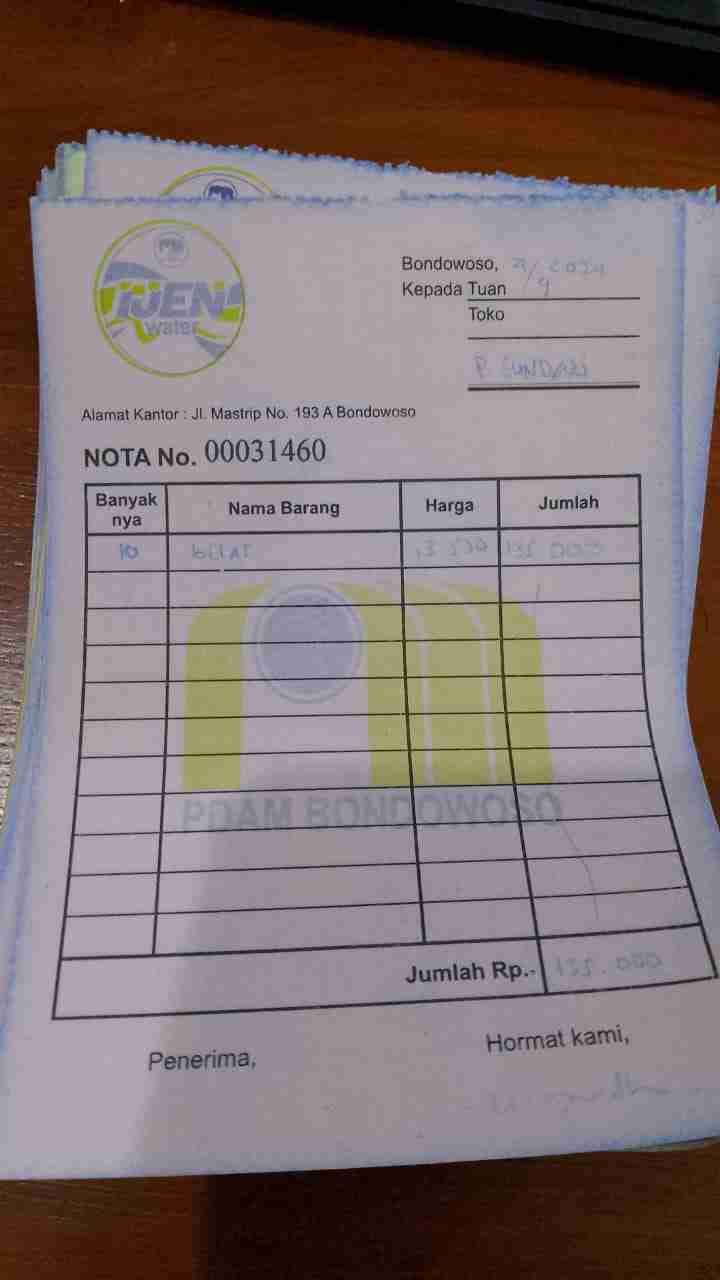 IJEN
water
Bondowoso, 2/9 2024
Kepada Tuan
Toko
P.
Alamat Kantor : Jl. Mastrip No. 193 A Bondowoso
NOTA No. 00031460
Banyak nya Nama Barang Harga Jumlah
10 GELAS 13.500 135.000
PDAM BONDOWOSO
Jumlah Rp.- 135.000
Penerima, Hormat kami,